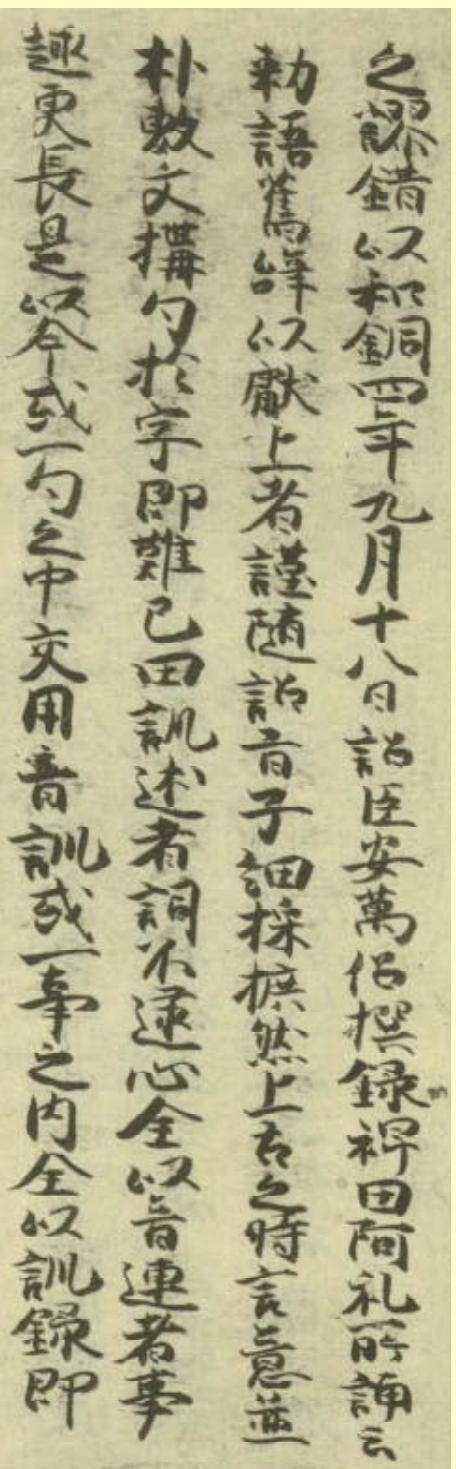 之謬錯以和銅四年九月十八日詔臣安萬侶撰録稗田阿礼所誦之
勅語舊辞以獻上者謹随詔旨子細採摭然上古之時言意並
朴敷文搆句於字即難已因訓述者詞不逮心全以音連者事
趣更長是以今或一句之中交用音訓或一事之内全以訓録即